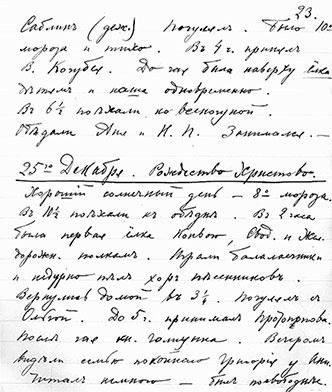 23.
Саблинъ (деж.) Погулялъ. Было 10°
мороза и тихо. Въ 4 ч. принялъ
В. Кочубея. До чая была наверху ёлка
дѣтямъ и наша одновременно.
Въ 6½ поѣхали ко всенощной.
Обѣдали Аня и Н. П. Занимался. —
25го Декабря. Рождество Христово.
Хорошій солнечный день — 8° мороза.
Въ 10½ поѣхали къ обѣднѣ. Въ 2 часа
была первая ёлка Конвою, Свод. и Жел.
дорожн. полкамъ. Играли балалаечники
и недурно пѣлъ хоръ пѣсенниковъ.
Вернулись домой въ 3¼. Погулялъ съ
Ольгой. До 5 ч. принималъ Протопопова.
Послѣ чая кн. Голицына. Вечеромъ
видѣли семью покойнаго Григорія у Ани.
Читалъ немного — былъ свободенъ.